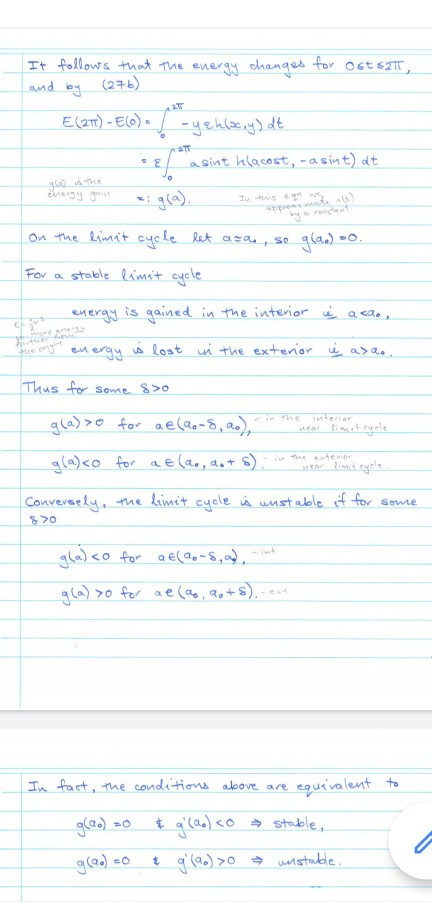 It follows that the energy changes for 0≤t≤2π,
and by (27b)
E(2π) - E(0) = ∫₀^2π -yεh(x,y) dt
= ε∫₀^2π a sint h(acost, -asint) dt
g(a) is the
energy gain
=: g(a).
In this eqn we
approximate a(t)
by a constant
On the limit cycle let a≈a₀, so g(a₀)=0.
For a stable limit cycle
energy is gained in the interior ie a<a₀,
more energy
further from
the origin
energy is lost in the exterior ie a>a₀.
Thus for some δ>0
g(a)>0 for a∈(a₀-δ, a₀), - in the interior
near limit cycle
g(a)<0 for a∈(a₀, a₀+δ). - in the exterior
near limit cycle.
Conversely, the limit cycle is unstable if for some
δ>0
g(a)<0 for a∈(a₀-δ, a₀), - int
g(a)>0 for a∈(a₀, a₀+δ). - ext.
In fact, the conditions above are equivalent to
g(a₀)=0 & g'(a₀)<0 ⇒ stable,
g(a₀)=0 & g'(a₀)>0 ⇒ unstable.